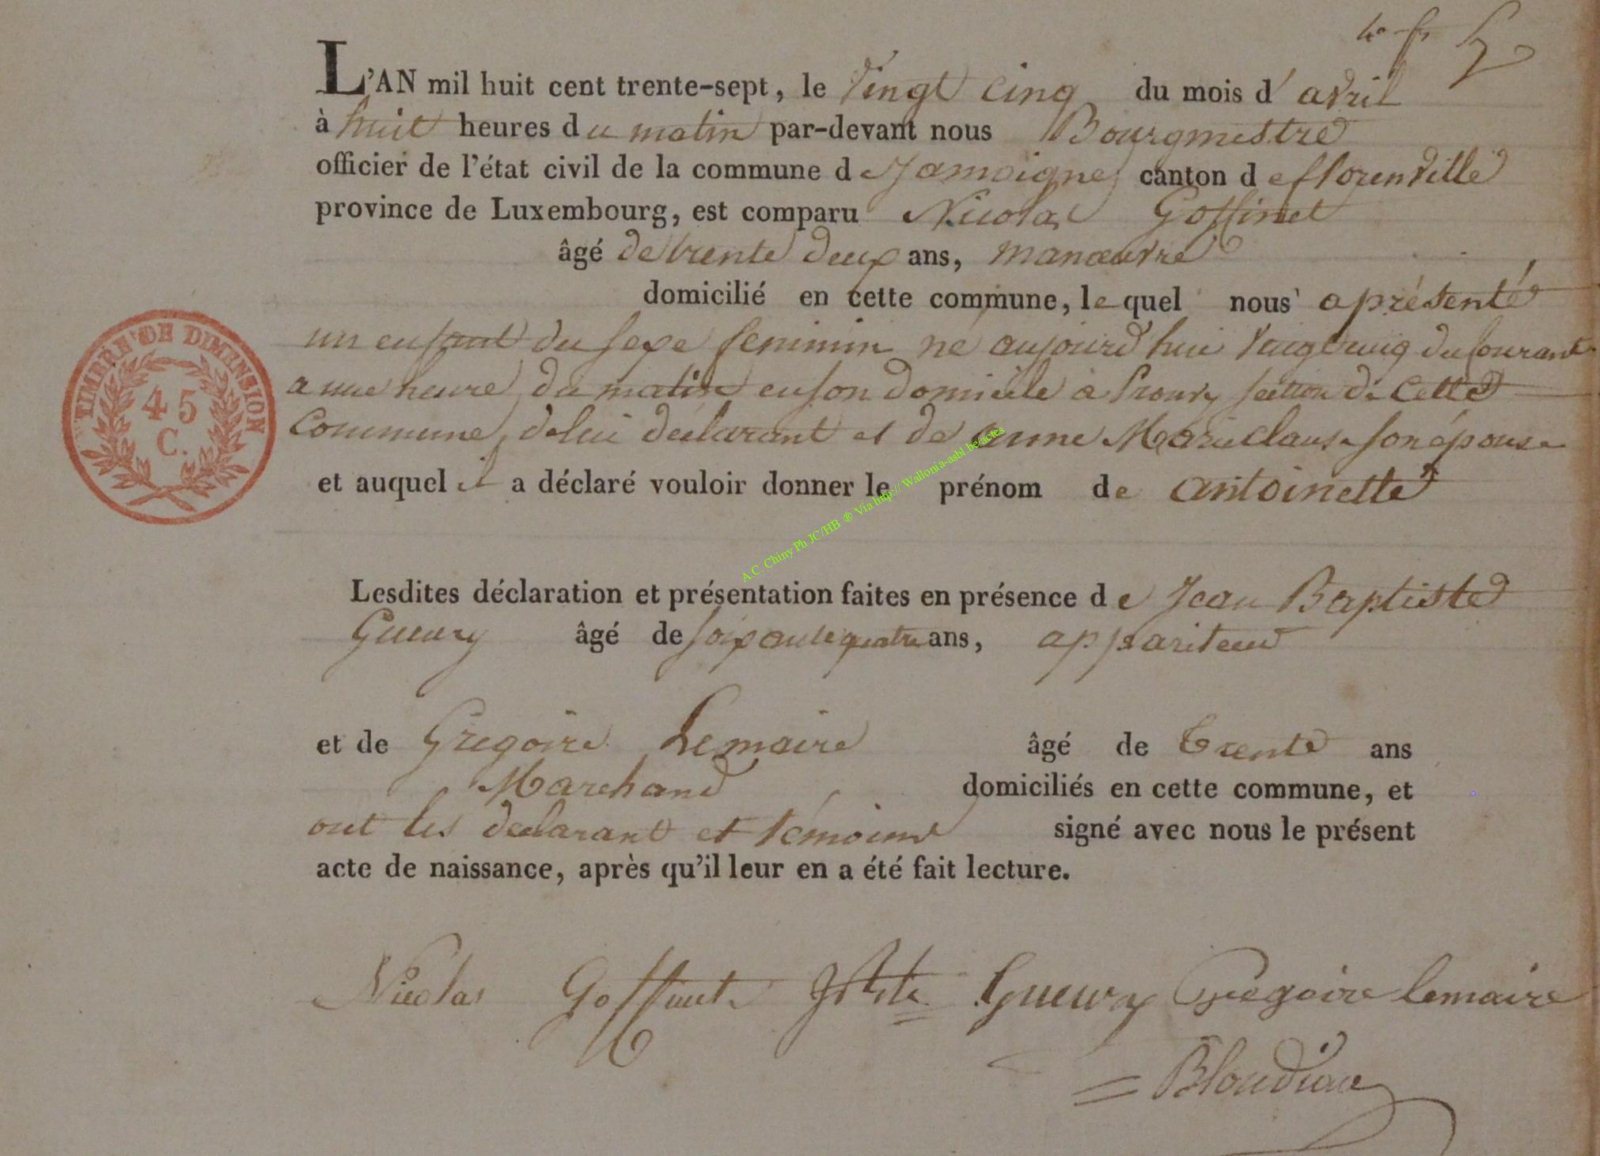 L'AN mil huit cent trente-sept, le vingt cinq du mois d'avril
à huit heures du matin par-devant nous Bourgmestre
officier de l'état civil de la commune de Jamoigne canton de florenville
province de Luxembourg, est comparu Nicolas Goffinet
âgé de trente deux ans, manœuvre
domicilié en cette commune, lequel nous a présenté
un enfant du sexe feminin né aujourd'hui vingt cinq du Courant
a une heure du matin en son domicile à Prouvy section de Cette
Commune, de lui déclarant et de anne Marie claus son épouse
et auquel il a déclaré vouloir donner le prénom de antoinette
Lesdites déclaration et présentation faites en présence de Jean Baptiste
Gueury âgé de soixante quatre ans, appariteur
et de Gregoire Lemaire âgé de trente ans
Marchand domiciliés en cette commune, et
ont les declarant et témoins signé avec nous le présent
acte de naissance, après qu'il leur en a été fait lecture.
Nicolas Goffinet Gueury Gregoire lemaire
Blondiau
TIMBRE DE DIMENSION
45
C.
A.C. Chiny Ph JC/HB ® Via http// Wallonia-asbl.be/actes